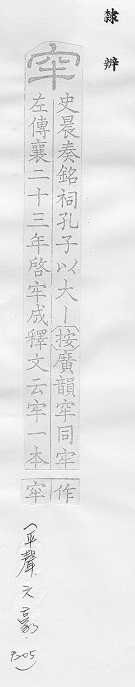 隸辨
窂
史晨奏銘祠孔子以大丨按廣韻窂同牢
左傳襄二十三年啓牢成釋文云牢一本
作
窂
(平聲.六豪.P205)